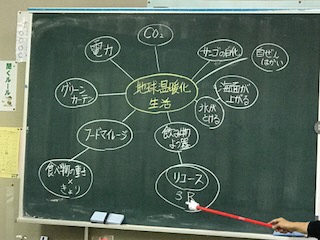 CO₂
電力
サンゴの白化
自ぜん
はかい
グリーン
カーテン
地球温暖化
生活
海面が
上がる
氷が
とける
フードマイレージ
飲み物
よう器
食べ物の重さ
×
きょり
リユース
3R
聞くルール